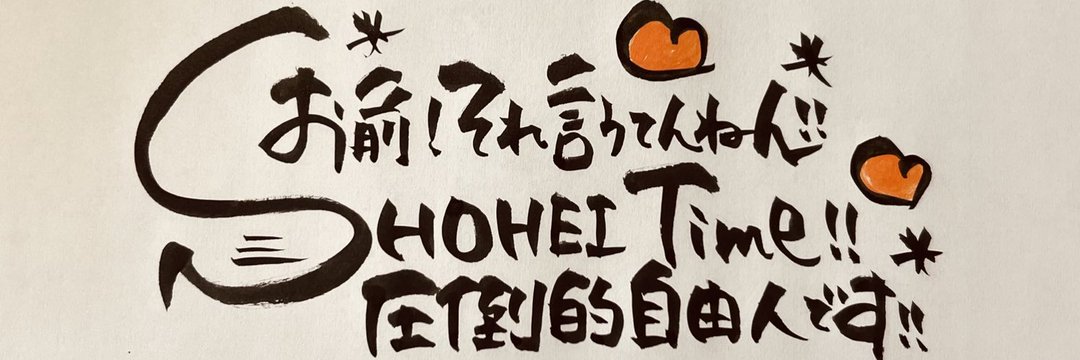 お前!それ言うてんねん!!
SHOHEI Time!!
圧倒的自由人です!!